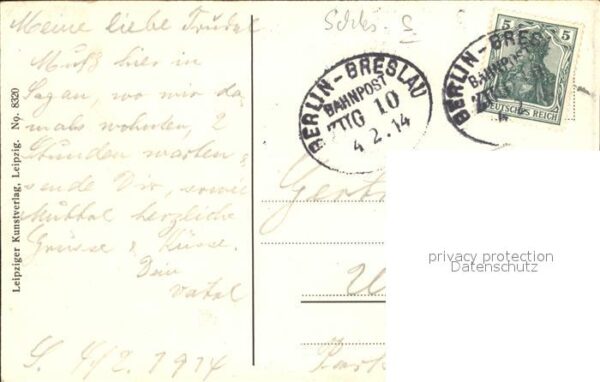 Meine liebe Trudel
Muß hier in
Sagan, wo wir da-
mals wohnten, 2
Stunden warten,
sende Dir, sowie
Muttel herzliche
Grüsse & Küsse.
Dein
Vatel
S. 4/2. 1914
Leipziger Kunstverlag, Leipzig. No. 8320
Schles.
BERLIN-BRESLAU
BAHNPOST
ZUG 10
4 2.14
BERLIN-BRESL
BAHNP
ZUG
5 5
DEUTSCHES REICH
Gert
privacy protection
Datenschutz